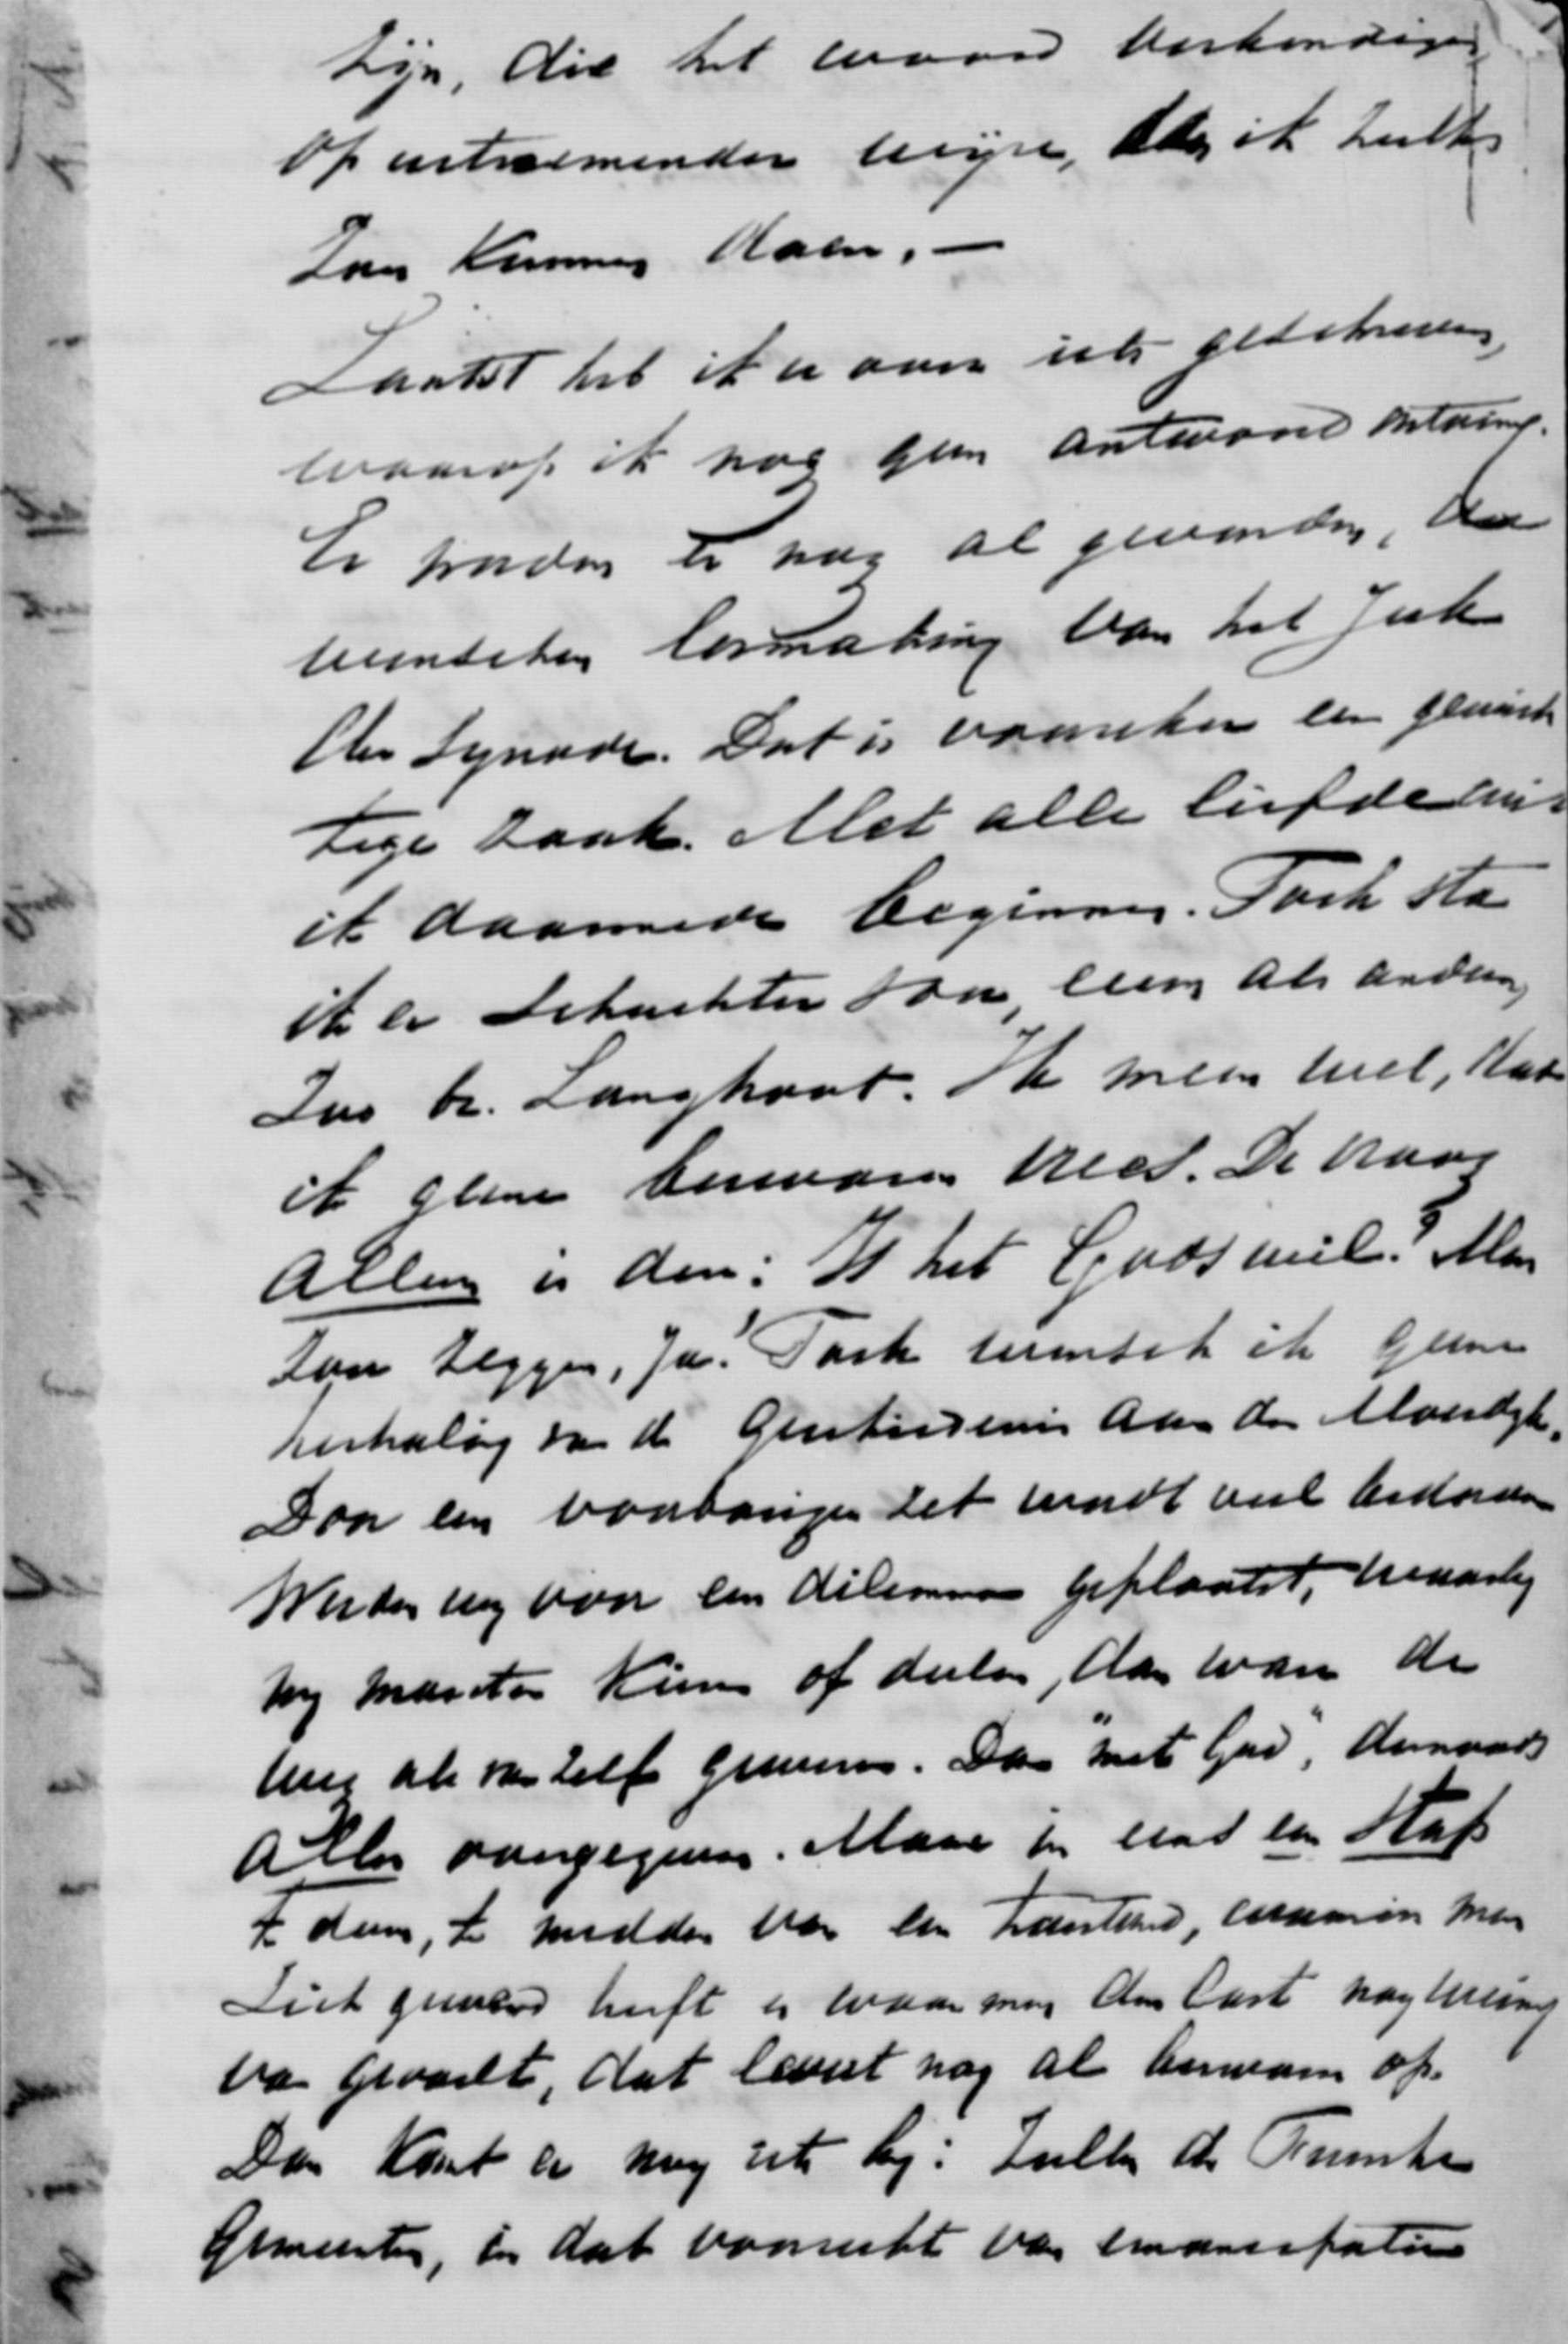 zijn, die het woord verkondigen
op uitnemender wijze, dan ik zulks
zou kunnen doen. —
Laatst heb ik u over iets geschreven,
waarop ik nog geen antwoord ontving.
Er zijn er nog al gevonden, die
wenschen losmaking van het Juk
der Synode. Dat is voorzeker een gewich
tige zaak. Met alle liefde wil
ik daarmede beginnen. Toch sta
ik er schuchter voor, even als anderen,
Zoo br. Langhout. Ik meen wel, dat
ik geene bezwaren vrees. De vraag
alleen is deze: Is het Gods wil? Men
zou zeggen, ja! Toch wensch ik geene
herhaling van de geschiedenis aan den Moerdijk.
Door een voorbarigen zet wordt veel bedorven
Werden wij voor een dilemma geplaatst, waarbij
wij moesten kiezen of deelen, dan ware de
weg als van zelf gewezen. Dan "met God", dernaards
Aller aangegeven. Maar in eens een stap
te doen, te midden van een toestand, waarin men
zich gewend heeft en waar men den last nog weinig
van gevoelt, dat levert nog al bezwaren op.
Dan komt er nog iets bij: Zullen de
Gemeenten, in dat vooruitzicht van emancipatie